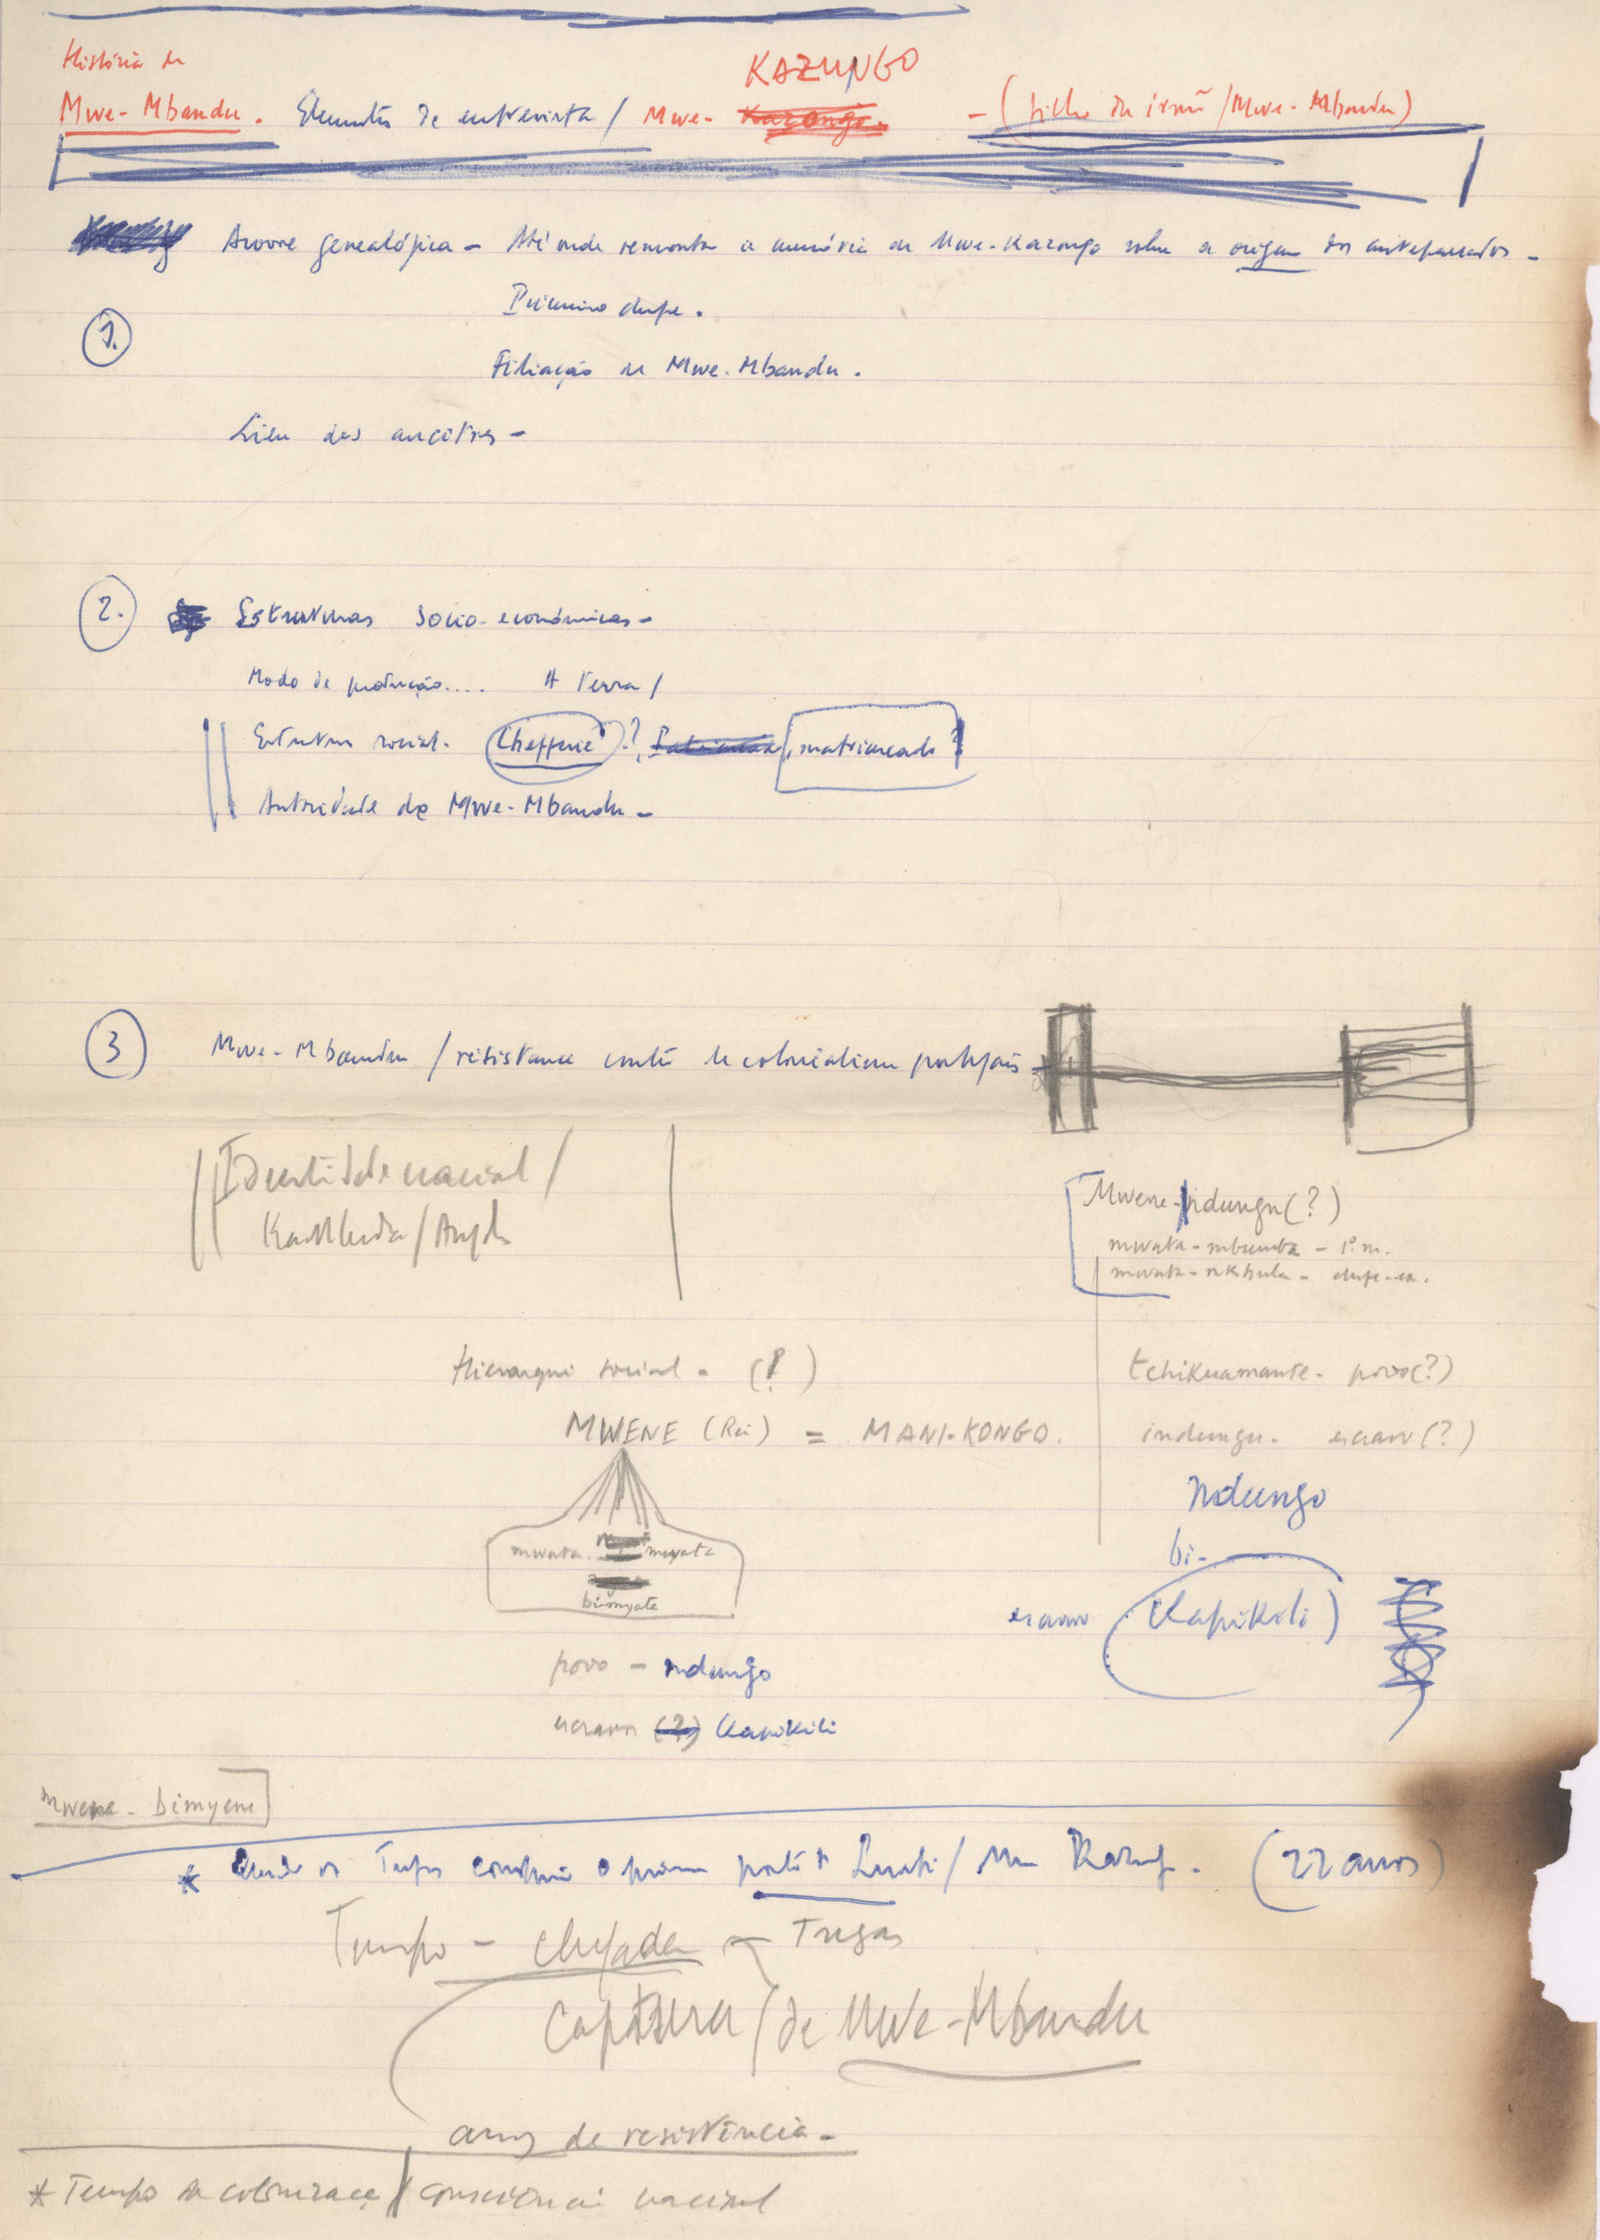 História de
Mwe-Mbandu. Elementos de entrevista / Mwe- KAZUNGO - (filho da irmã / Mwe-Mbandu)
Arvore genealógica - Até onde remonta a memória de Mwe-Kazongo sobre a origem dos antepassados -
1.
Primeiro chefe.
Filiação de Mwe-Mbandu.
Lieu des ancêtres -
2. Estruturas socio-económicas -
Modo de produção.... A terra /
Estrutura social. Chefferie ?, matriarcado ?
Autoridade de Mwe-Mbandu -
3 Mwe-Mbandu / résistance contre le colonialism português
Identidade nacional /
Mwene-ndungu (?)
mwata-mbumba - 1º m.
mwata - chefe-
Hierarqui social - (?)
tchikuamante - povo (?)
MWENE (Rei) = MANI-KONGO.
indungu - escravo (?)
Ndungo
mwata mwata
bi-
escravo Kapikili
povo - ndungo
escravos (?) Kapikili
mwene - bimyene
* Quando os Tugas o primeiro posto / Kazungo. (22 anos)
Tempo - chegada Tugas
Captura / de Mwe-Mbandu
anos de resistência -
* Tempo da colonização / consciência nacional